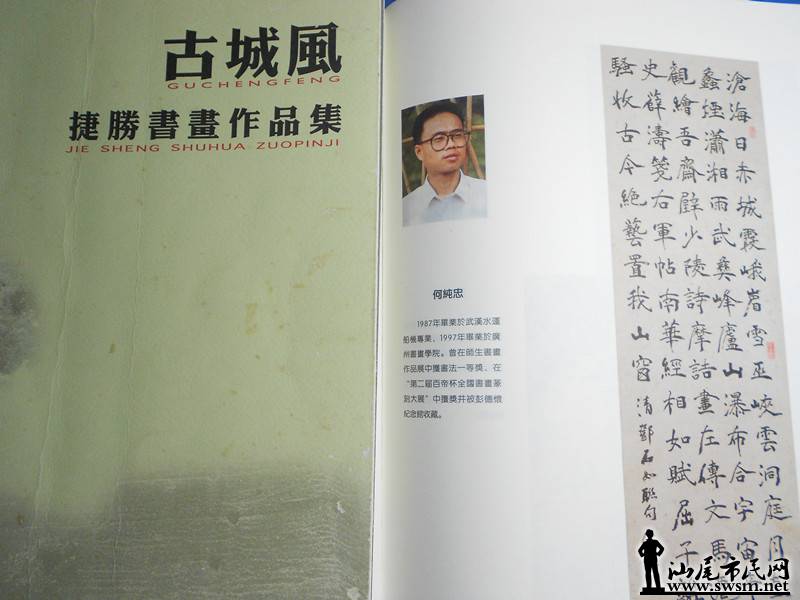 古城風
GUCHENGFENG
捷勝書畫作品集
JIE SHENG SHUHUA ZUOPINJI
何純忠
1987年畢業於武漢水運
船機專業、1997年畢業於廣
州書畫學院。曾在師生書畫
作品展中獲書法一等獎、在
“第二屆百帝杯全國書畫篆
刻大展”中獲獎并被彭德懷
紀念館收藏。
滄海日赤城霞峨眉雪巫峽雲洞庭月
蠡煙瀟湘雨武彝峰廬山瀑布合宇宙
觀繪吾齋壁少陵詩摩詰畫左傳文馬
史薛濤箋右軍帖南華經相如賦屈子
騷收古今絕藝置我山窗清鄧石如聯句
汕尾市民网
www.swsm.com